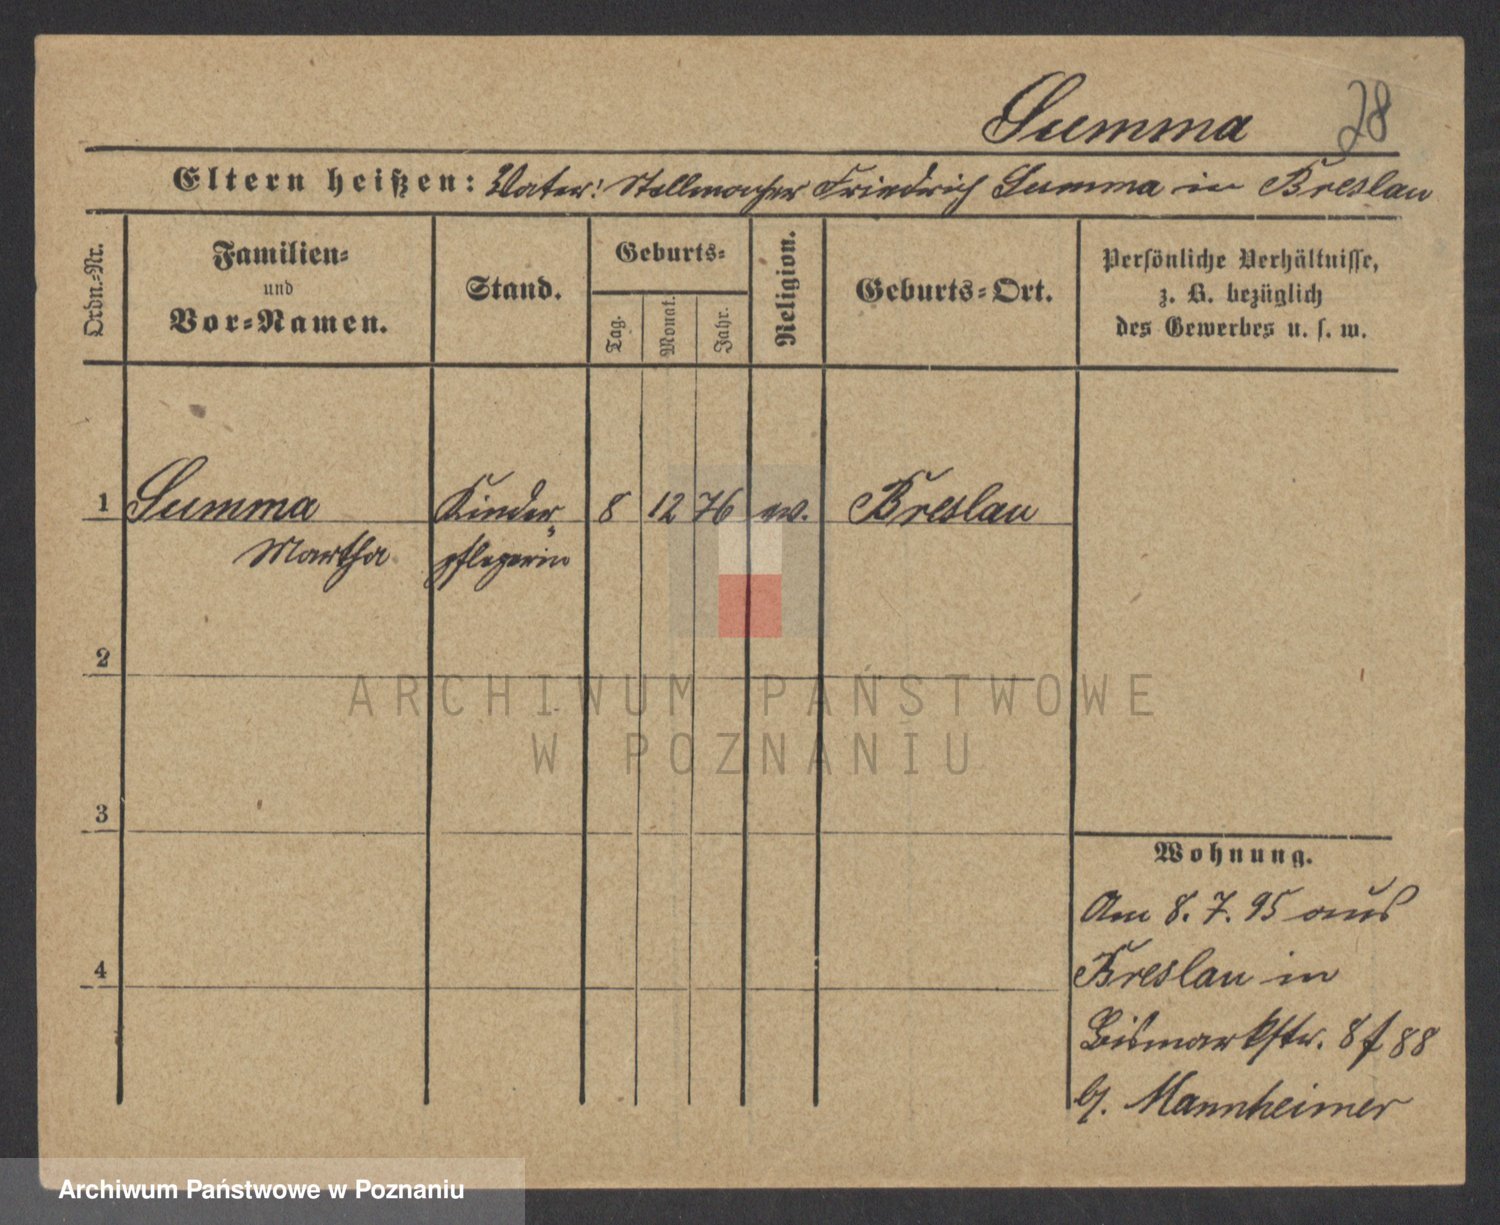 Summa 28
Eltern heißen: Vater: Stellmacher Friedrich Summa in Breslau
Ordn.-Nr.
Familien-
und
Vor-Namen.
Stand.
Geburts-
Tag.
Monat.
Jahr.
Religion.
Geburts-Ort.
Persönliche Verhältnisse,
z. B. bezüglich
des Gewerbes u. s. w.
1 Summa Kinder- 8 12 76 ev. Breslau
Martha pflegerin
2
3
4
Wohnung.
Am 8. 7. 95 aus
Breslau in
Bismarkstr. 8 f 88
bj. Mannheimer
ARCHIWUM PAŃSTWOWE
W POZNANIU
Archiwum Państwowe w Poznaniu